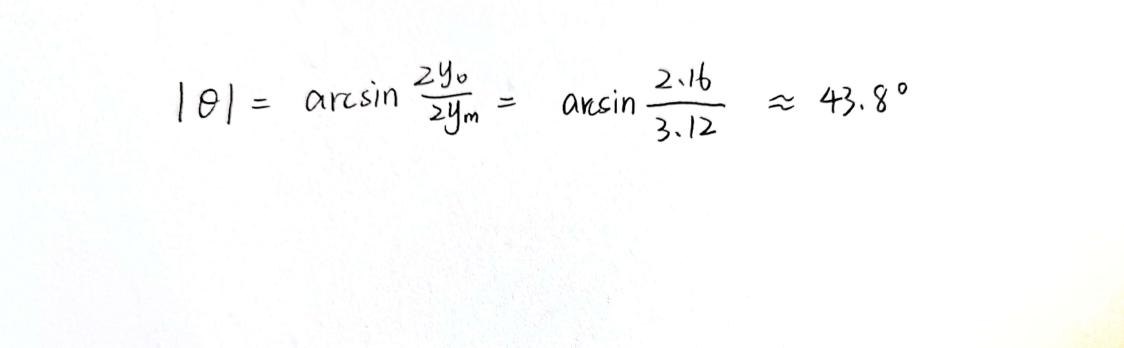 |θ| = arcsin 2y₀/2yₘ = arcsin 2.16/3.12 ≈ 43.8°